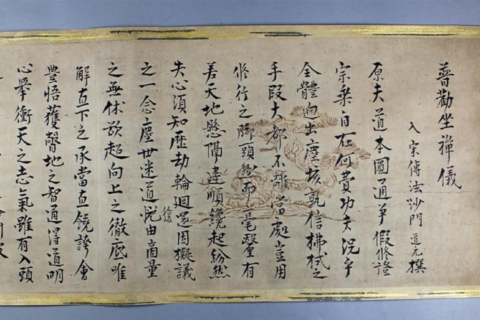 普勸坐禪儀
入宋傳法沙門 道元 撰
原夫道本圓通爭假修證
宗乘自在何費功夫況乎
全體迥出塵埃孰信拂拭之
手段大都不離當處豈用
修行之脚頭然而毫釐有
差天地懸隔違順纔起紛然
失心須知歷劫輪迴還因擬議
之一念塵世迷道復由商量
之無休欲超向上之徹底唯
解直下之承當直饒誇會
豐悟獲瞥地之智通得道明
心擧衝天之志氣雖有入頭